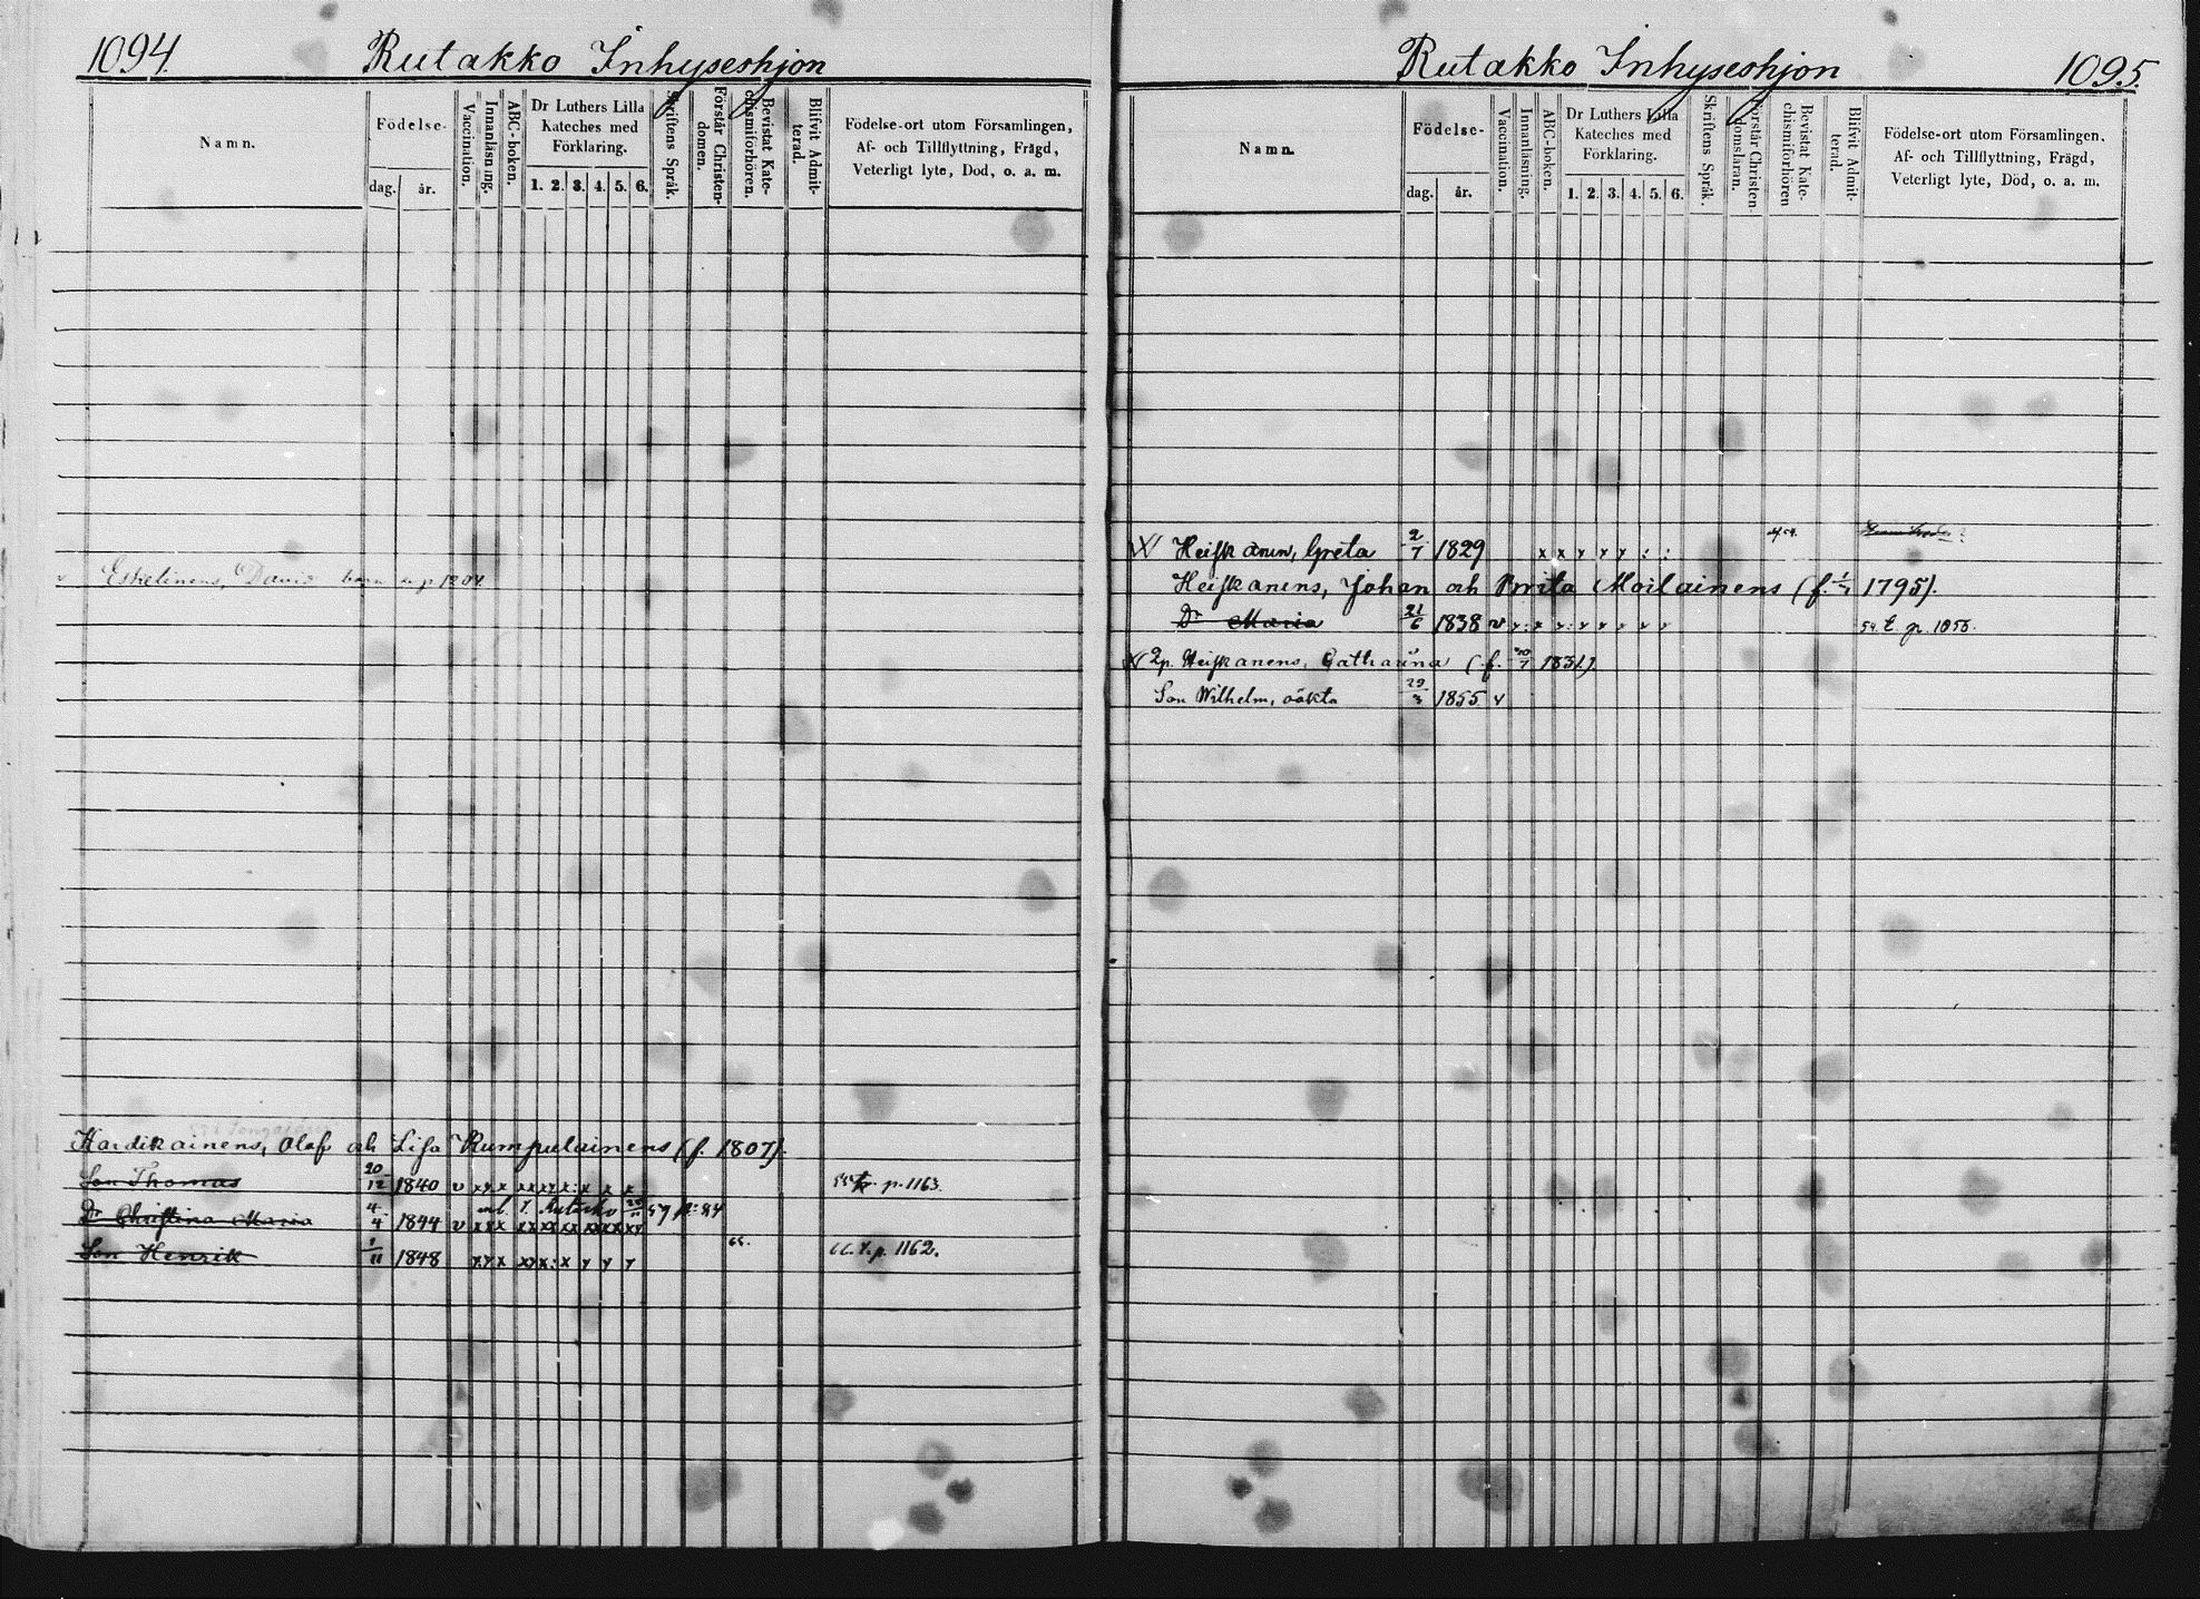 1094.
Rutakko Inhyseshjon
Namn.
Födelse-
dag.
år.
Vaccination.
Innanläsning.
ABC-boken.
Dr Luthers Lilla
Kateches med
Förklaring.
1. 2. 3. 4. 5. 6.
Skriftens Språk.
Förstår Christen-
domen.
Bevistat Kate-
chismiförhören.
Blifvit Admit-
terad.
Födelse-ort utom Församlingen,
Af- och Tillflyttning, Frägd,
Veterligt lyte, Dod, o. a. m.
Eskelinens, David barn
Kardikainens, Olaf och Lisa Rumpulainens (f. 1807).
Son Thomas 20/12 1840 v p. 1163.
Rutakko
Dr Christina Maria 4/4 1844 v
Son Henrik 1/11 1848 p. 1162.
Rutakko Inhyseshjon
1095.
Namn.
Födelse-
dag.
år.
Vaccination.
Innanläsning.
ABC-boken.
Dr Luthers Lilla
Kateches med
Förklaring.
1. 2. 3. 4. 5. 6.
Skriftens Språk.
Förstår Christen-
domsläran.
Bevistat Kate-
chismiförhören
Blifvit Admit-
terad.
Födelse-ort utom Församlingen.
Af- och Tillflyttning, Frägd,
Veterligt lyte, Död, o. a. m.
Heiskanen, Greta 2/7 1829 x x y y y : :
Heiskanens, Johan och Brita Moilainens (f. 1795).
Dr Maria 21/6 1838 v 54. p. 1056.
Heiskanens, Catharina (f. 1831)
Son Wilhelm, oäkta 29/3 1855. v